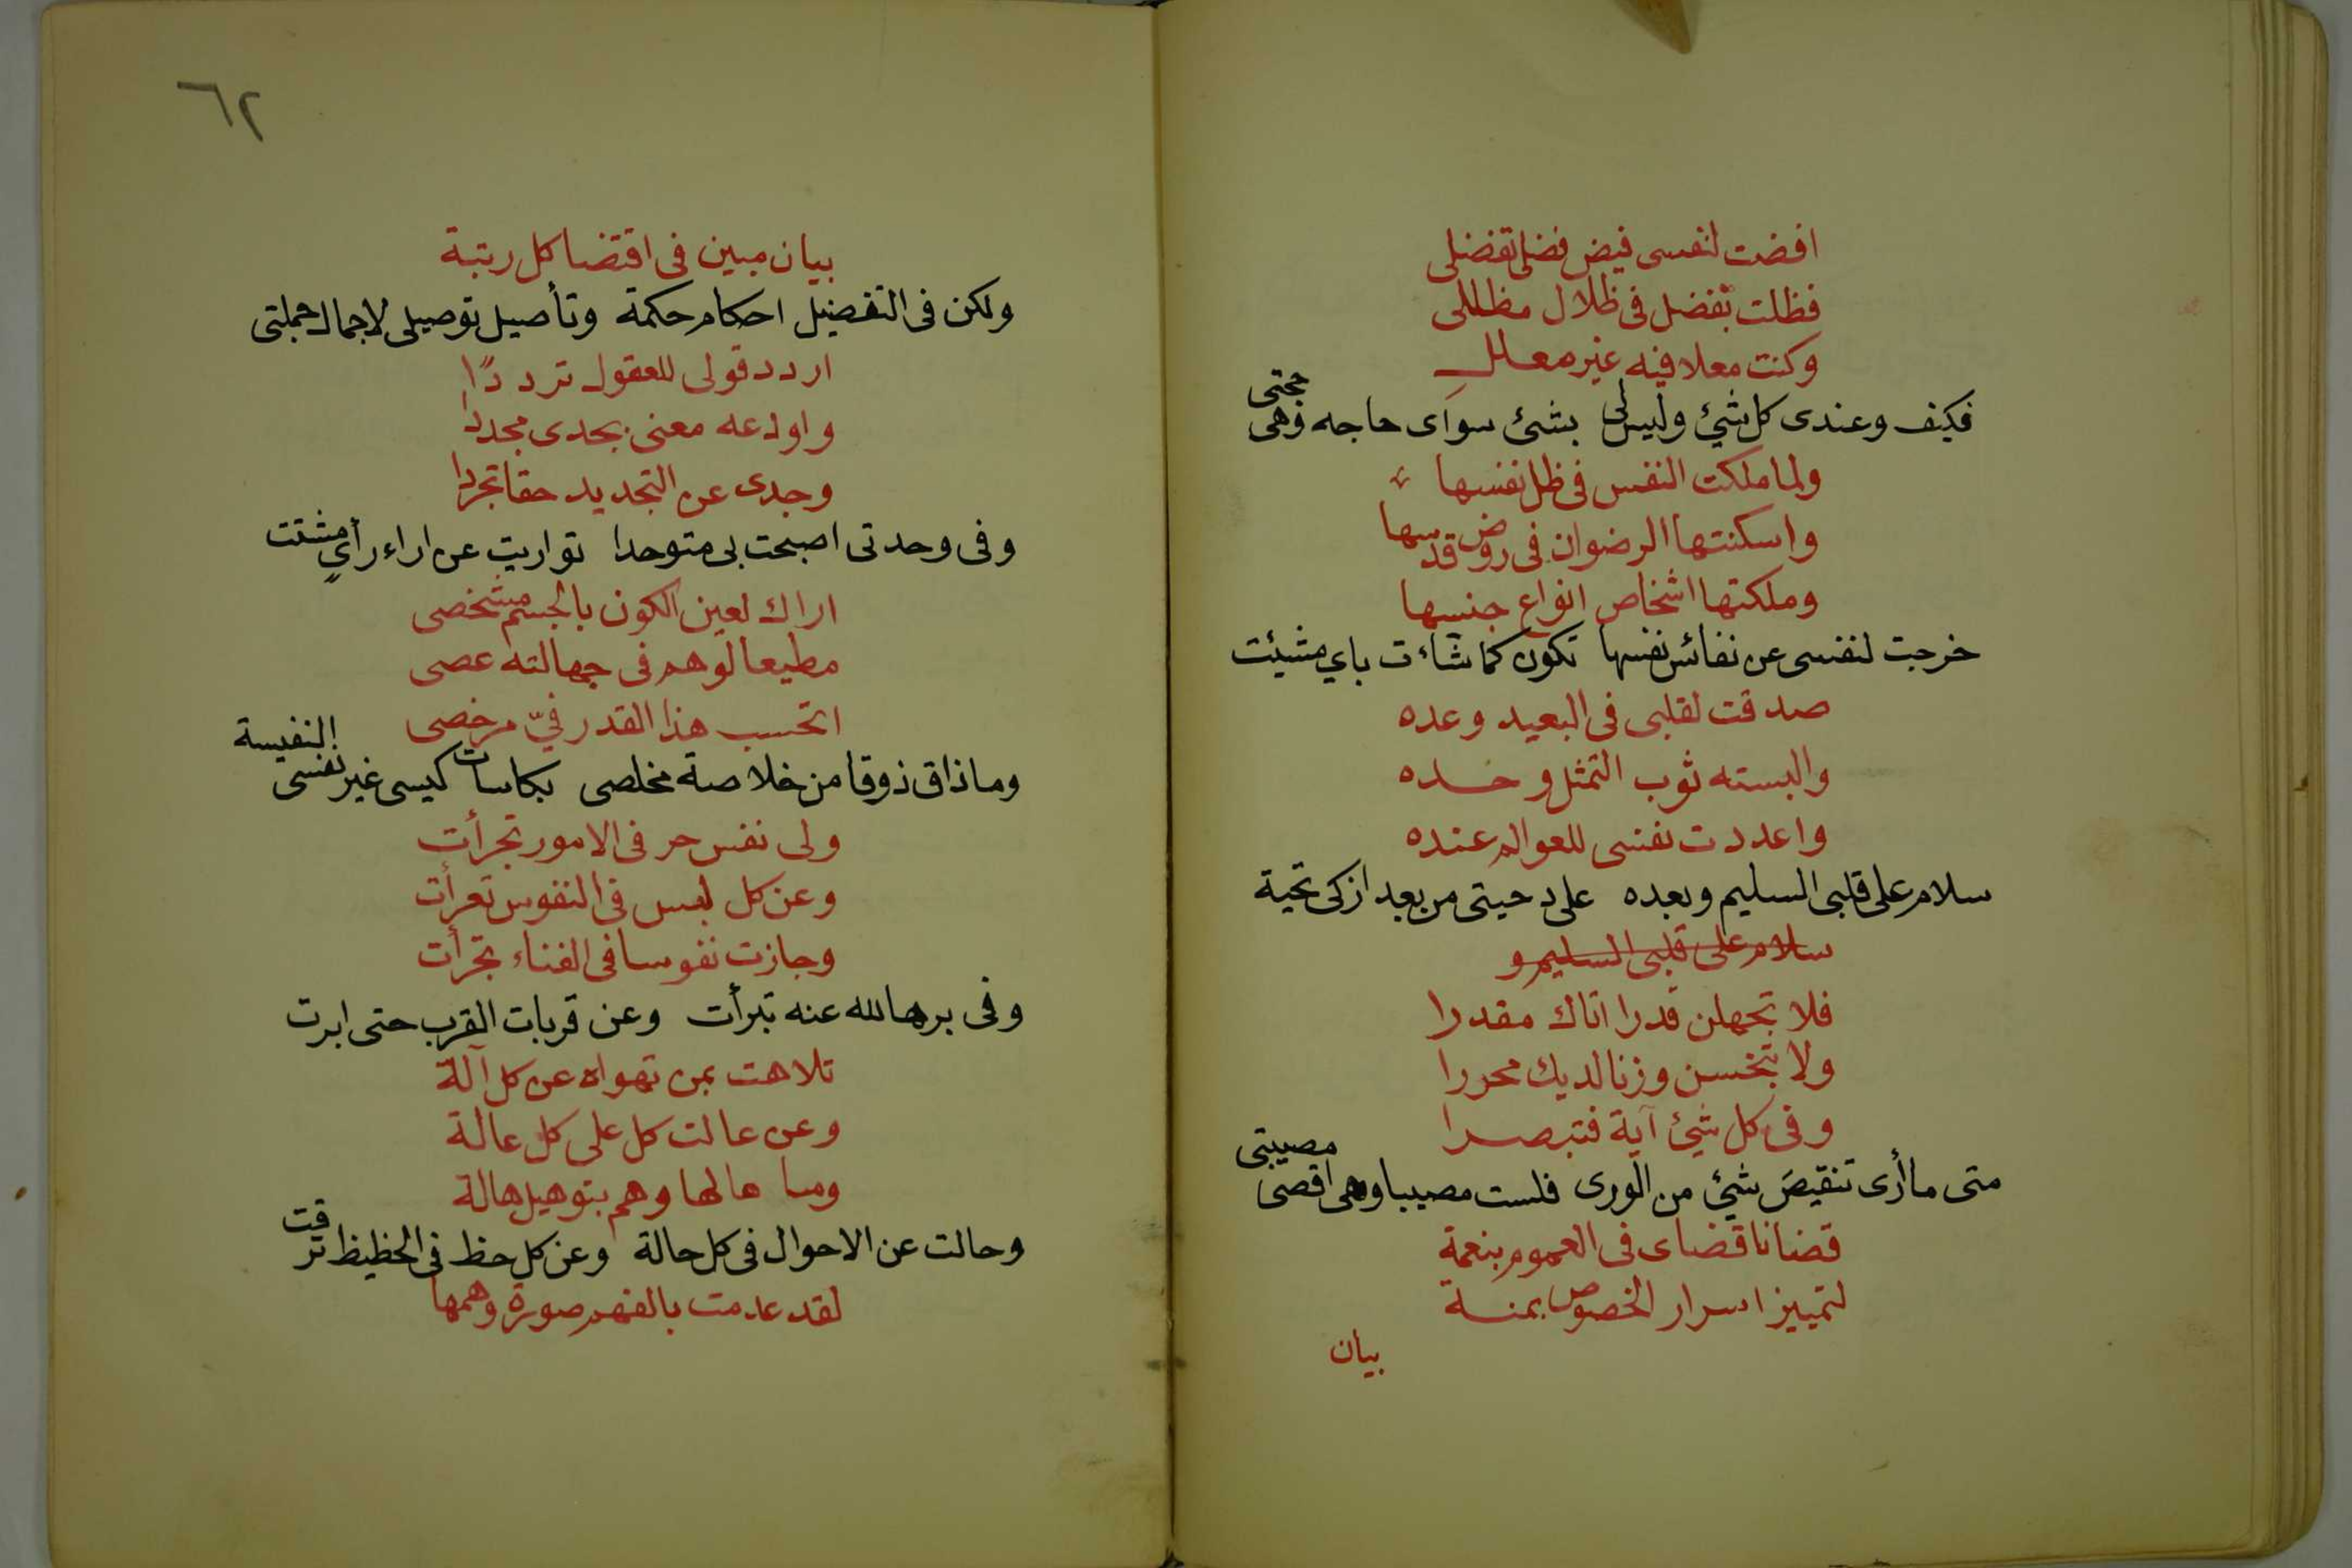 افضت لنفسى فيض فضل تفضلى
فظلت بفضل فى ظلال مظللى
وكنت معلا فيه غير معلل
فكيف وعندى كل شئ وليس لى بشئ سواى حاجه وهى حجتى
ولما ملكت النفس فى ظل نفسها
واسكنتها الرضوان فى روض قدسها
وملكتها اشخاص انواع جنسها
خرجت لنفسى عن نفائس نفسها تكون كما شاءت باي مشيئت
صدقت لقلبى فى البعيد وعده
والبسته ثوب التمثل وحده
واعددت نفسى للعوالم عنده
سلام على قلبى السليم وبعده على دحيتى من بعد ازكى تحية
سلام على قلبى السليم و
فلا تجهلن قدرا اتاك مقدرا
ولا تبخسن وزنا لديك محررا
وفى كل شئ آية فتبصرا
متى ما أرى تنقيص شئ من الورى فلست مصيبا وهى اقصى مصيبتى
قضانا قضاى فى العموم بنعمة
لتمييز اسرار الخصوص بمنة
بيان
٦٢
بيان مبين فى اقتضا كل رتبة
ولكن فى التفضيل احكام حكمة وتأصيل توصيلى لاجمال جملتى
اردد قولى للعقول ترددًا
واودعه معنى بجدى مجددا
وجدى عن التجديد حقا تجردا
وفى وحدتى اصبحت بى متوحدا تواريت عن اراء رأيٍ مشتت
اراك لعين الكون بالجسم مشخصى
مطيعا لوهم فى جهالته عصى
اتحسب هذا القدر فيّ مرخصى
وما ذاق ذوقا من خلاصة مخلصى بكاسات كيسى غير نفسى النفيسة
ولى نفس حر فى الامور تجرأت
وعن كل لبس فى النفوس تعرأت
وجازت نفوسا فى الفناء تجرأت
وفى برها لله عنه تبرأت وعن قربات القرب حتى ابرت
تلاهت بمن تهواه عن كل آلة
وعن عالت كل على كل عالة
وما هالها وهم بتوهيل هالة
وحالت عن الاحوال فى كل حالة وعن كل حظ فى الحظيظ ترقت
لقد عدمت بالفهم صورة وهمها